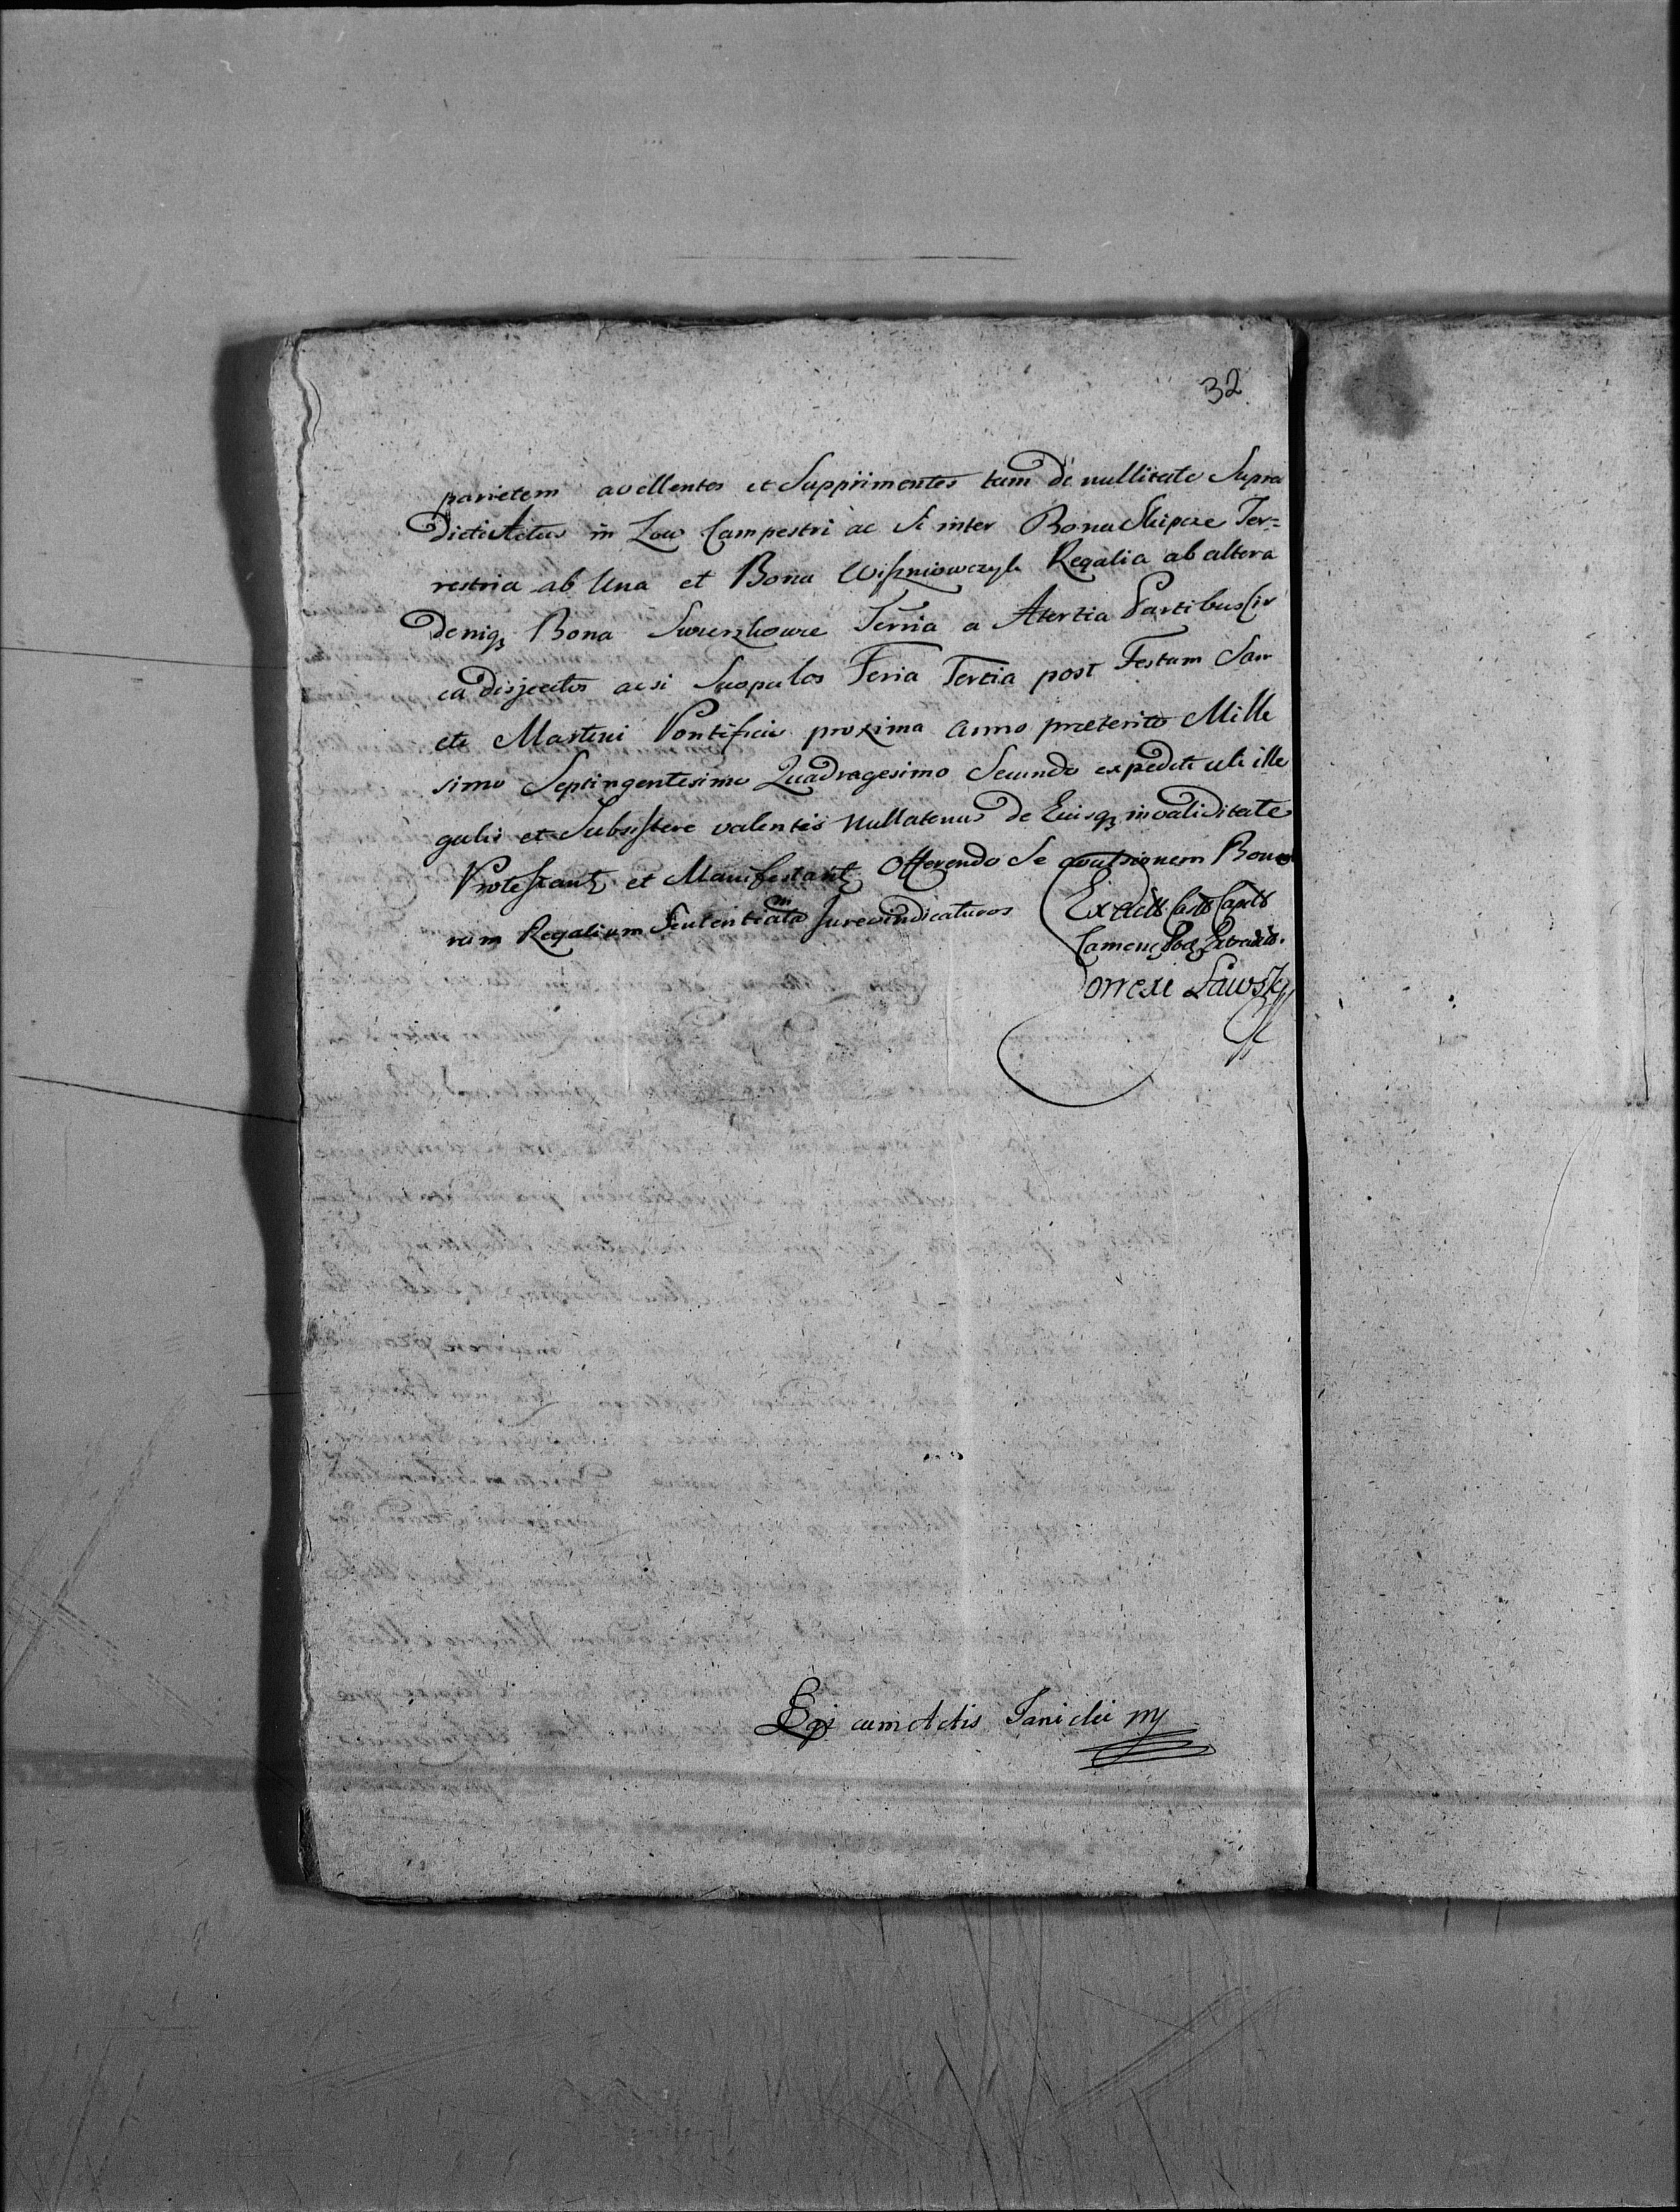 32
parietem avellentes et Supprimentes tam de nullitate Supra
dicti Actus in Loco Campestri ac si inter Bona Skipcze Ter=
restria ab Una et Bona Wiszniowczyk Regalia ab altera
deniq₃ Bona Terria a Atertia Partibus Cir
ca disjectos acsi Scopulos Feria Tertia post Festum San
cti Martini Pontificis proxima Anno praeterito Mille
simo Septingentesimo Quadragesimo Secundo expediti uti ille
galis et Subsistere valentis Nullatenus de Eiusq₃ invaliditate
Protestant₃ et Manifestant₃ Offerendo Se avulsionem Bono
rum Regalium Sententiatam Jurevindicaturos Ex Actis Casts Capts
Camene Pod Extradit.
Correxi Ławski
Legi cum Actis Janicki mp